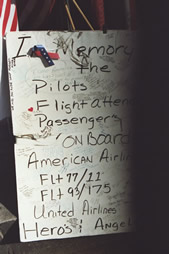 I Memory
the
Pilots
Flight atten
Passengers
'ON BOARD
American Airlin
FLT 77/11
FLT 93/175
United Airlines
Hero's & Angel